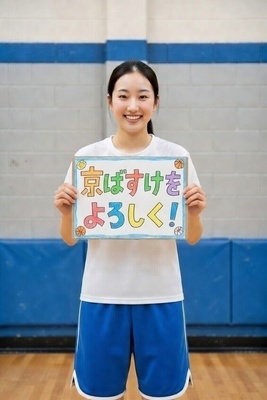 京ばすけを
よろしく!